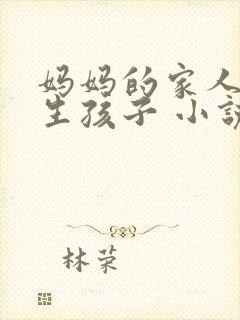 妈妈的家人
生孩子 小説
林荣